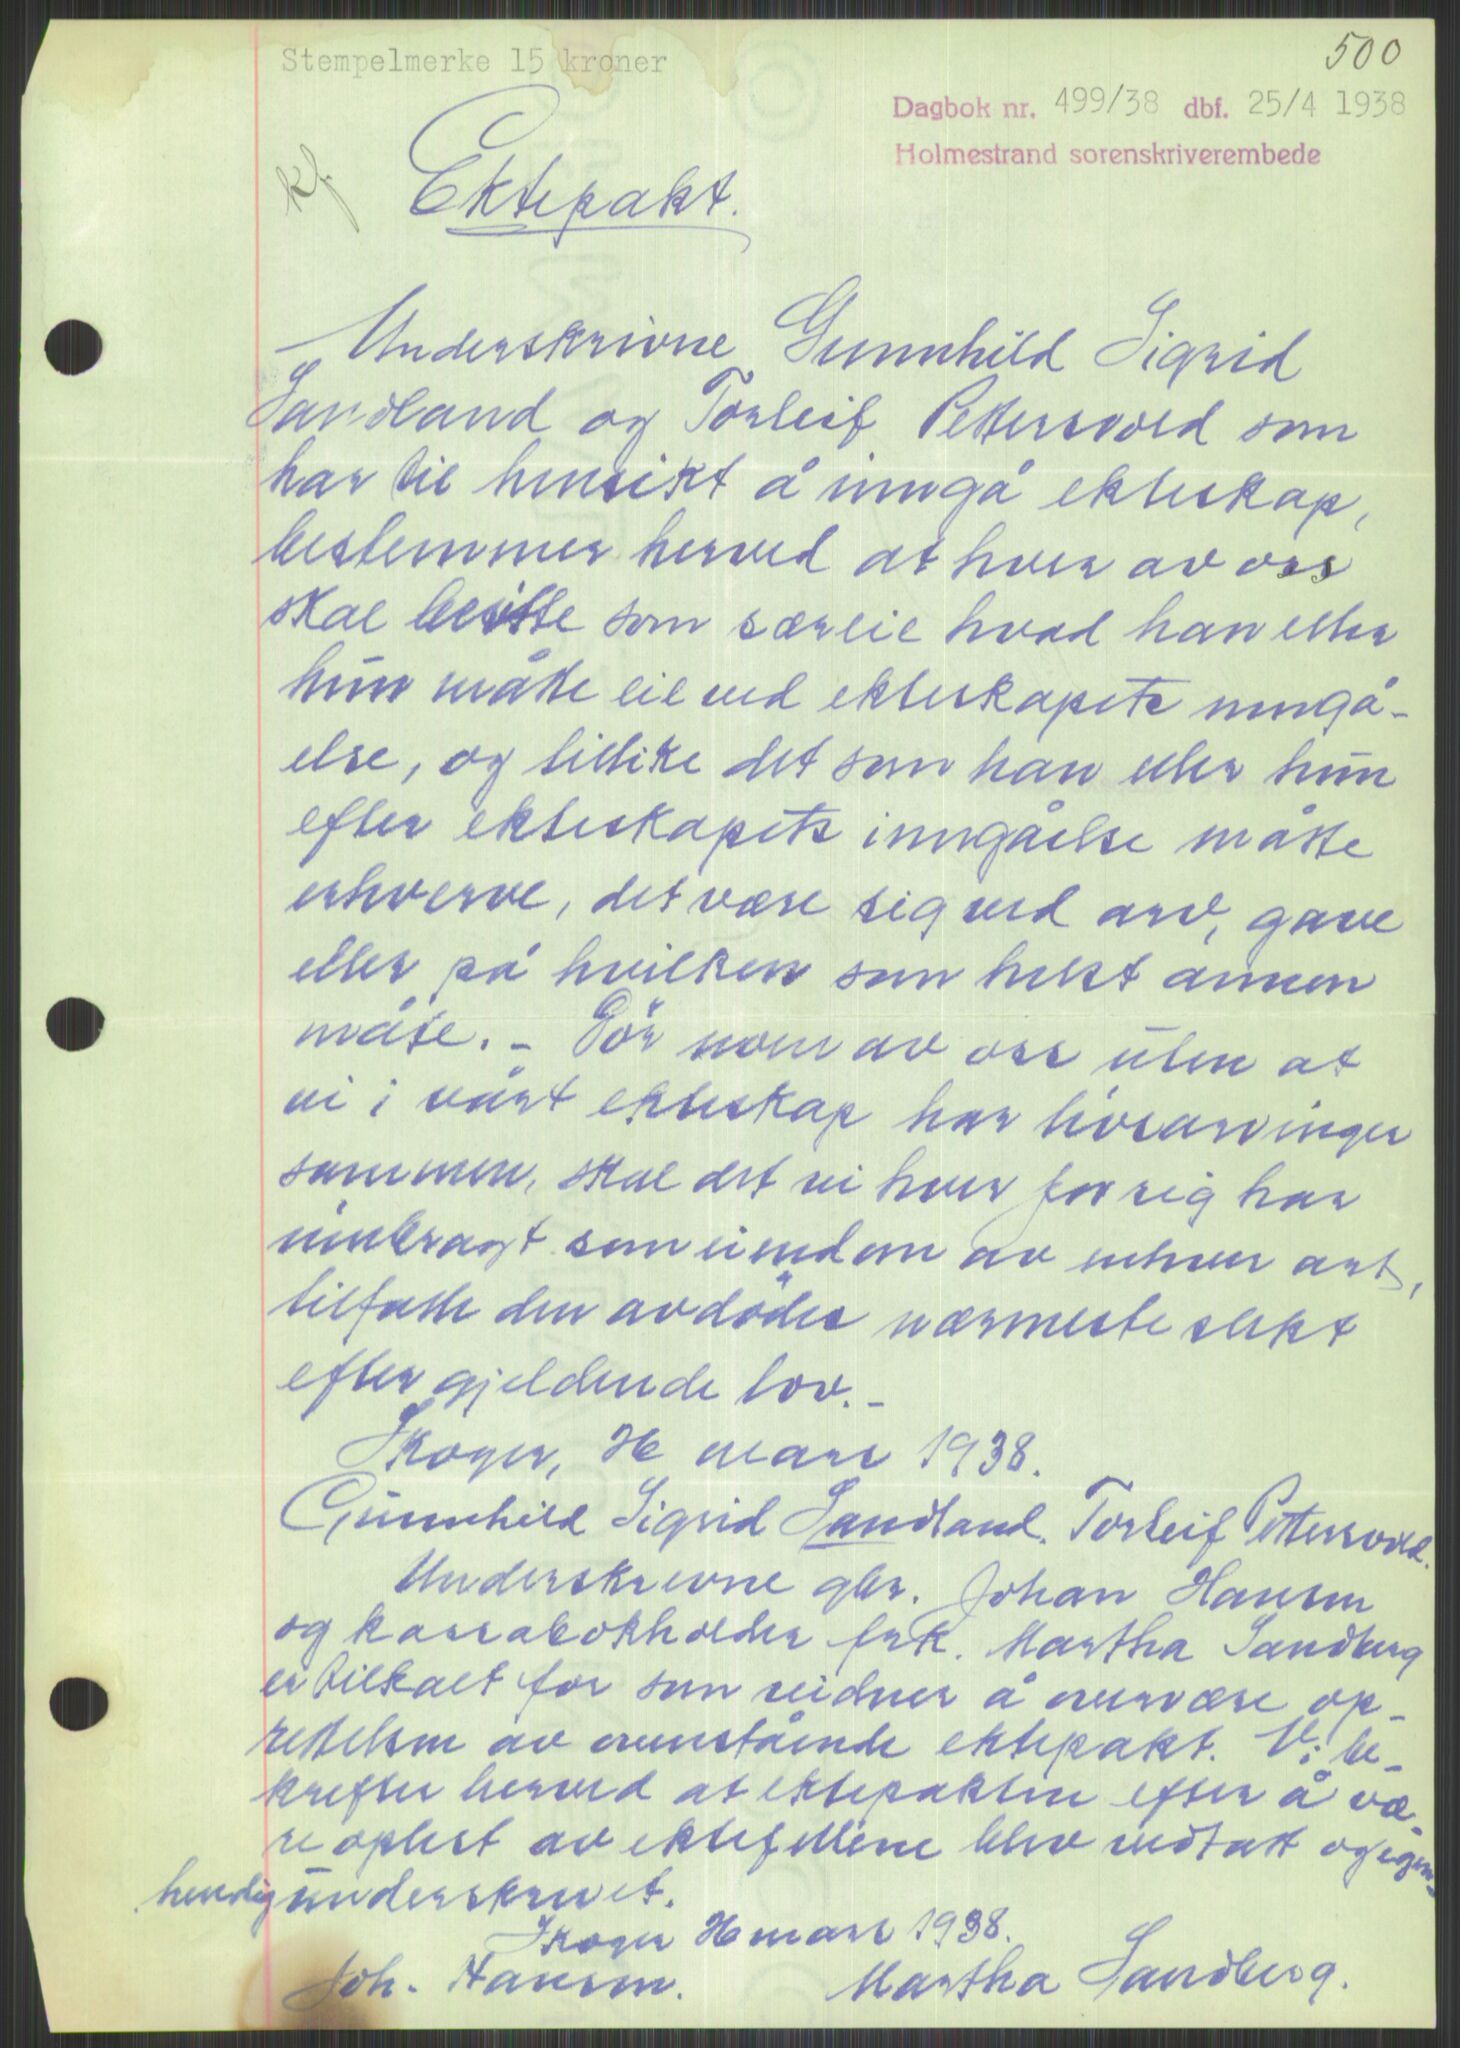 Stempelmerke 15 kroner
500
Dagbok nr. 499/38 dbf. 25/4 1938
Holmestrand sorenskriverembede
Ektepakt.
Underskrivne Gunnhild Sigrid
Sandland og Torleif Pettersvold som
har til hensikt å inngå ekteskap,
bestemmer herved at hver av oss
skal besitte som særeie hvad han eller
hun måtte eie ved ekteskapets inngå-
else, og tillike det som han eller hun
efter ekteskapets inngåelse måtte
erhverve, det være sig ved arv, gave
eller på hvilken som helst annen
måte. - Dör noen av oss uten at
vi i vårt ekteskap har livsarvinger
sammen, skal det vi hver for sig har
innbragt som eiendom av enhver art,
tilfalle den avdödes nærmeste slekt
efter gjeldende lov. -
Skoger, mars 1938.
Gunnhild Sigrid Sandland. Torleif Pettersvold.
Underskrevne gbr. Johan Hansen
og kassabokholder frk. Martha Sandberg
er tilkalt for som vidner å overvære op-
rettelsen av ovenstående ektepakt. Vi be-
krefter herved at ektepakten efter å væ-
re oplest av ektefellene blev vedtatt og egen-
hendig underskrevet.
Skoger mars 1938.
Joh. Hansen. Martha Sandberg.